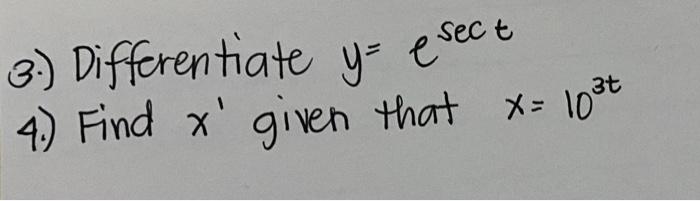 3.) Differentiate y= e^sec t
4.) Find x' given that x= 10^3t